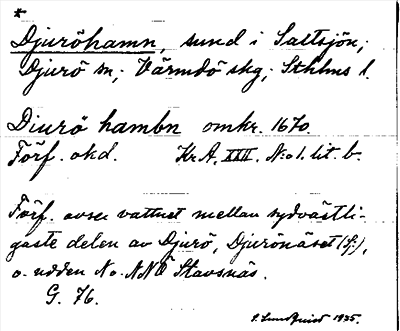 *
Djuröhamn, sund i Saltsjön;
Djurö sn; Värmdö skg; Sthlms l.
Diurö hambn omkr. 1670.
Förf. okd. Kr.A. XXII. No 1. lit. b.
Förf. avser vattnet mellan sydvästli-
gaste delen av Djurö, Djurönäset (Sj:),
o. udden N o. NNÖ Stavsnäs.
G. 76.
S. Lundqvist 1935.